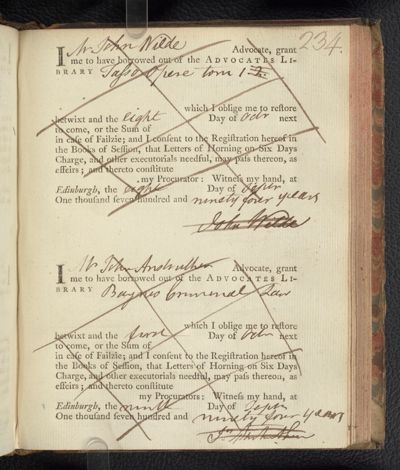 234.
I Mr John Wilde Advocate, grant
me to have borrowed out of the ADVOCATES LI-
BRARY Tasso Opere tom 1
which I oblige me to restore
betwixt and the eight Day of Octr next
to come, or the Sum of
in case of Failzie; and I consent to the Registration hereof in
the Books of Session, that Letters of Horning on Six Days
Charge, and other executorials needful, may pass thereon, as
effeirs; and thereto constitute
my Procurator: Witness my hand, at
Edinburgh, the eight Day of Septr
One thousand seven hundred and ninety four years
John Wilde
I Mr John Anstruther Advocate, grant
me to have borrowed out of the ADVOCATES LI-
BRARY Baynes Criminal Law
which I oblige me to restore
betwixt and the first Day of Octr next
to come, or the Sum of
in case of Failzie; and I consent to the Registration hereof in
the Books of Session, that Letters of Horning on Six Days
Charge, and other executorials needful, may pass thereon, as
effeirs; and thereto constitute
my Procurators: Witness my hand, at
Edinburgh, the ninth Day of Septr
One thousand seven hundred and ninety four years